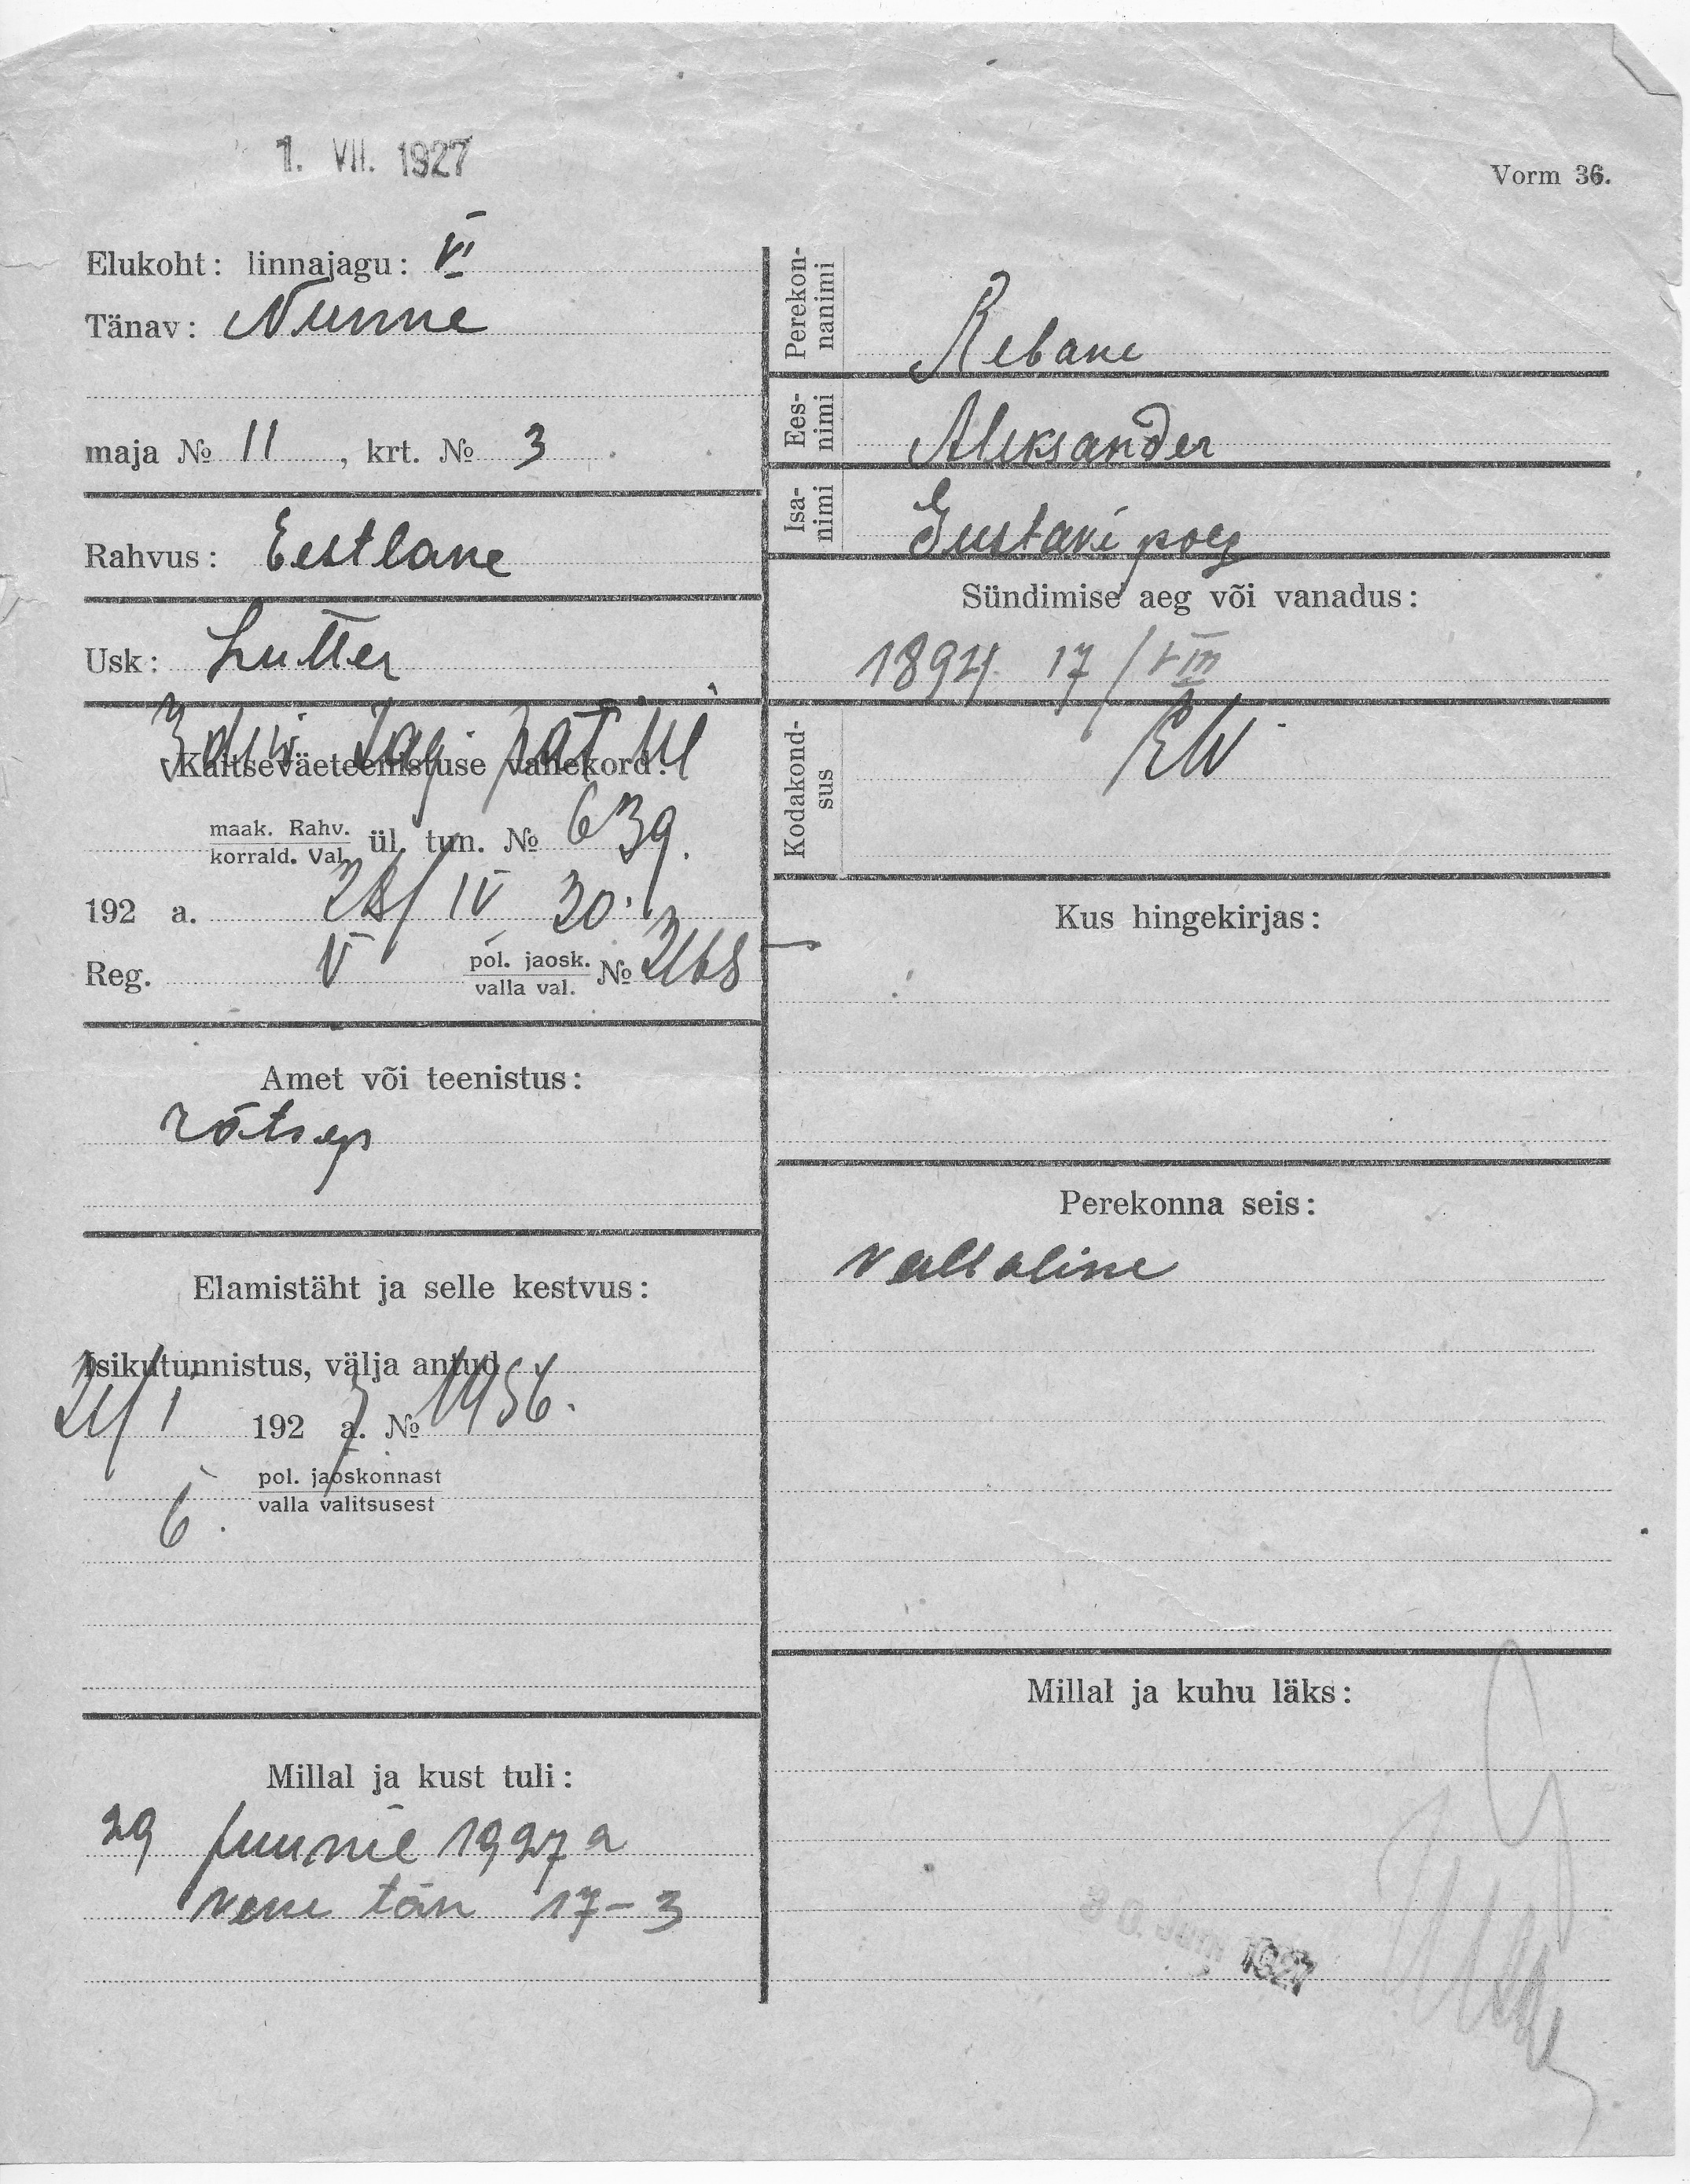 1. VII. 1927
Vorm 36.
Elukoht: linnajagu: VI
Tänav: Nunne
maja № 11, krt. № 3
Rahvus: Eestlane
Usk: Lutter
Kaitseväeteenistuse vahekord:
maak. Rahv.
korrald. Val. ül. tun. № 639.
192 a. 28/IV 20.
Reg. V pol. jaosk.
valla val. №
Amet või teenistus:
rätsep
Elamistäht ja selle kestvus:
Isikutunnistus, välja antud
21/I 1927 a. № 1456.
6. pol. jaoskonnast
valla valitsusest
Millal ja kust tuli:
29 juunil 1927 a
Vene tän 17-3
Perekon-
nanimi
Rebane
Ees-
nimi
Aleksander
Isa-
nimi
Gustavi poeg
Sündimise aeg või vanadus:
1894. 17/VIII
Kodakond-
sus
EW
Kus hingekirjas:
Perekonna seis:
vallaline
Millal ja kuhu läks:
30. JUUN. 1927